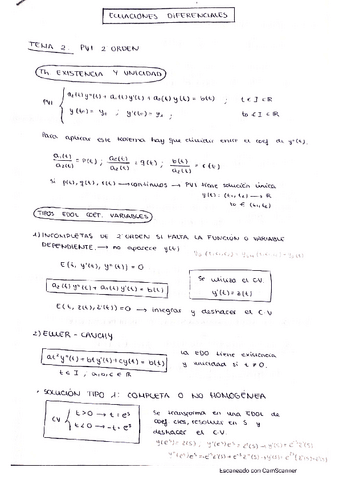 ECUACIONES DIFERENCIALES
TEMA 2. PVI 2 ORDEN
TH EXISTENCIA Y UNICIDAD
PVI { a₂(t)y''(t) + a₁(t)y'(t) + a₀(t)y(t) = b(t) ; t ∈ I ⊂ ℝ
y(t₀) = y₀ ; y'(t₀) = y₁ ; t₀ ∈ I ⊂ ℝ
Para aplicar este teorema hay que dividir entre el coef de y''(t).
= p(t) ; = q(t) ; b(t)/a₂(t) = r(t)
Si p(t), q(t), r(t) → continuos → PVI tiene solución única
y(t): (t₁, t₂) → ℝ
t₀ ∈ (t₁, t₂)
TIPOS EDOL COEF. VARIABLES
1) INCOMPLETAS DE 2 ORDEN SI FALTA LA FUNCIÓN O VARIABLE
DEPENDIENTE. → no aparece y(t)
E(t, y'(t), y''(t)) = 0
Se utiliza el C.V.
y'(t) = z(t)
a₂(t)y''(t) + a₁(t)y'(t) = b(t)
E(t, z(t), z'(t)) = 0 → integrar y deshacer el C.V
2) EULER - CAUCHY
at²y''(t) + bty'(t) + cy(t) = b(t)
La EDO tiene existencia
y unicidad si t ≠ 0.
t ∈ I , a, b, c ∈ ℝ
· SOLUCIÓN TIPO 1: COMPLETA O NO HOMOGÉNEA
CV { t > 0 → t = eˢ
t < 0 → -t = eˢ
Se transforma en una EDOL de
coef ctes, resolver en S y
deshacer el C.V.
Escaneado con CamScanner